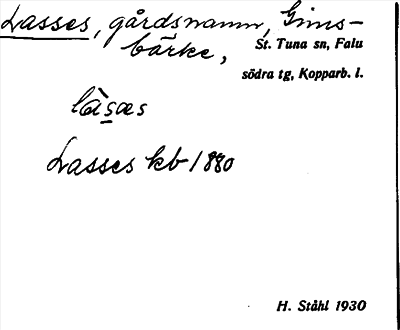 Lasses, gårdsnamn, Gims-
bärke,
St. Tuna sn, Falu
södra tg, Kopparb. l.
làsæs
Lasses kb 1880
H. Ståhl 1930